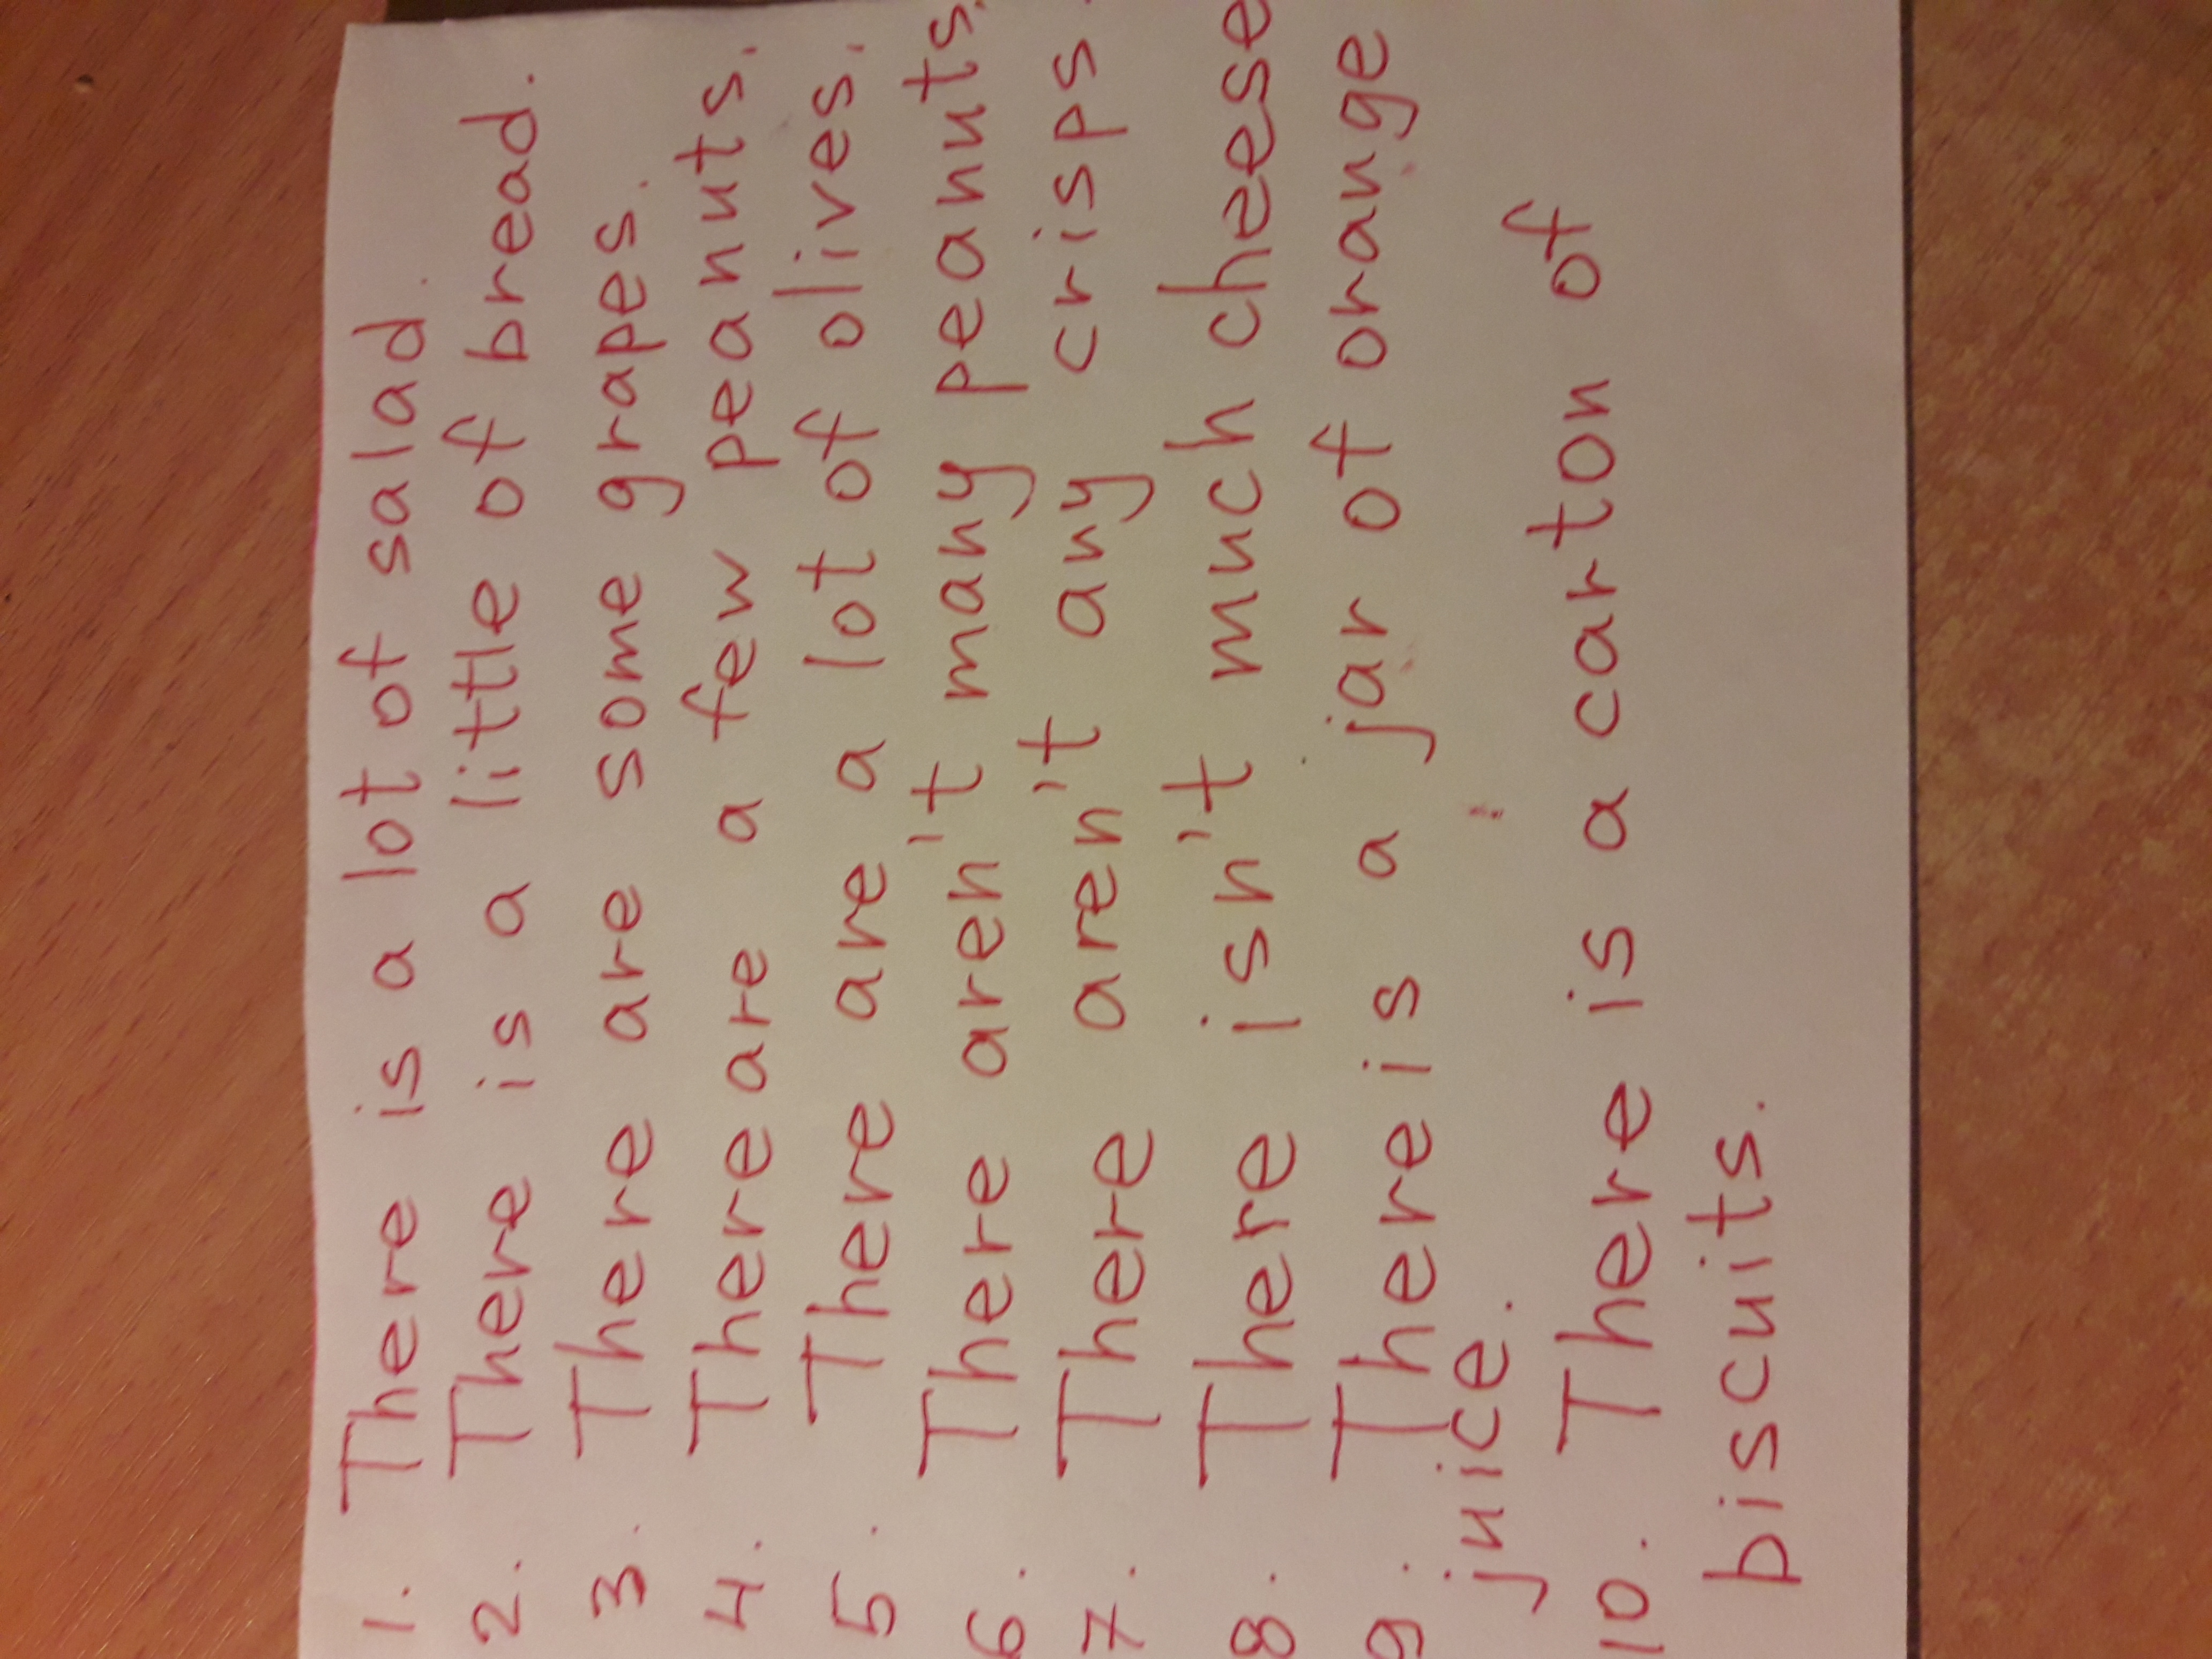 1. There is a lot of salad.
2. There is a little of bread.
3. There are some grapes.
4. There are a few peanuts.
5. There are a lot of olives.
6. There aren't many peanuts.
7. There aren't any crisps.
8. There isn't much cheese
9. There is a jar of orange
juice.
10. There is a carton of
biscuits.